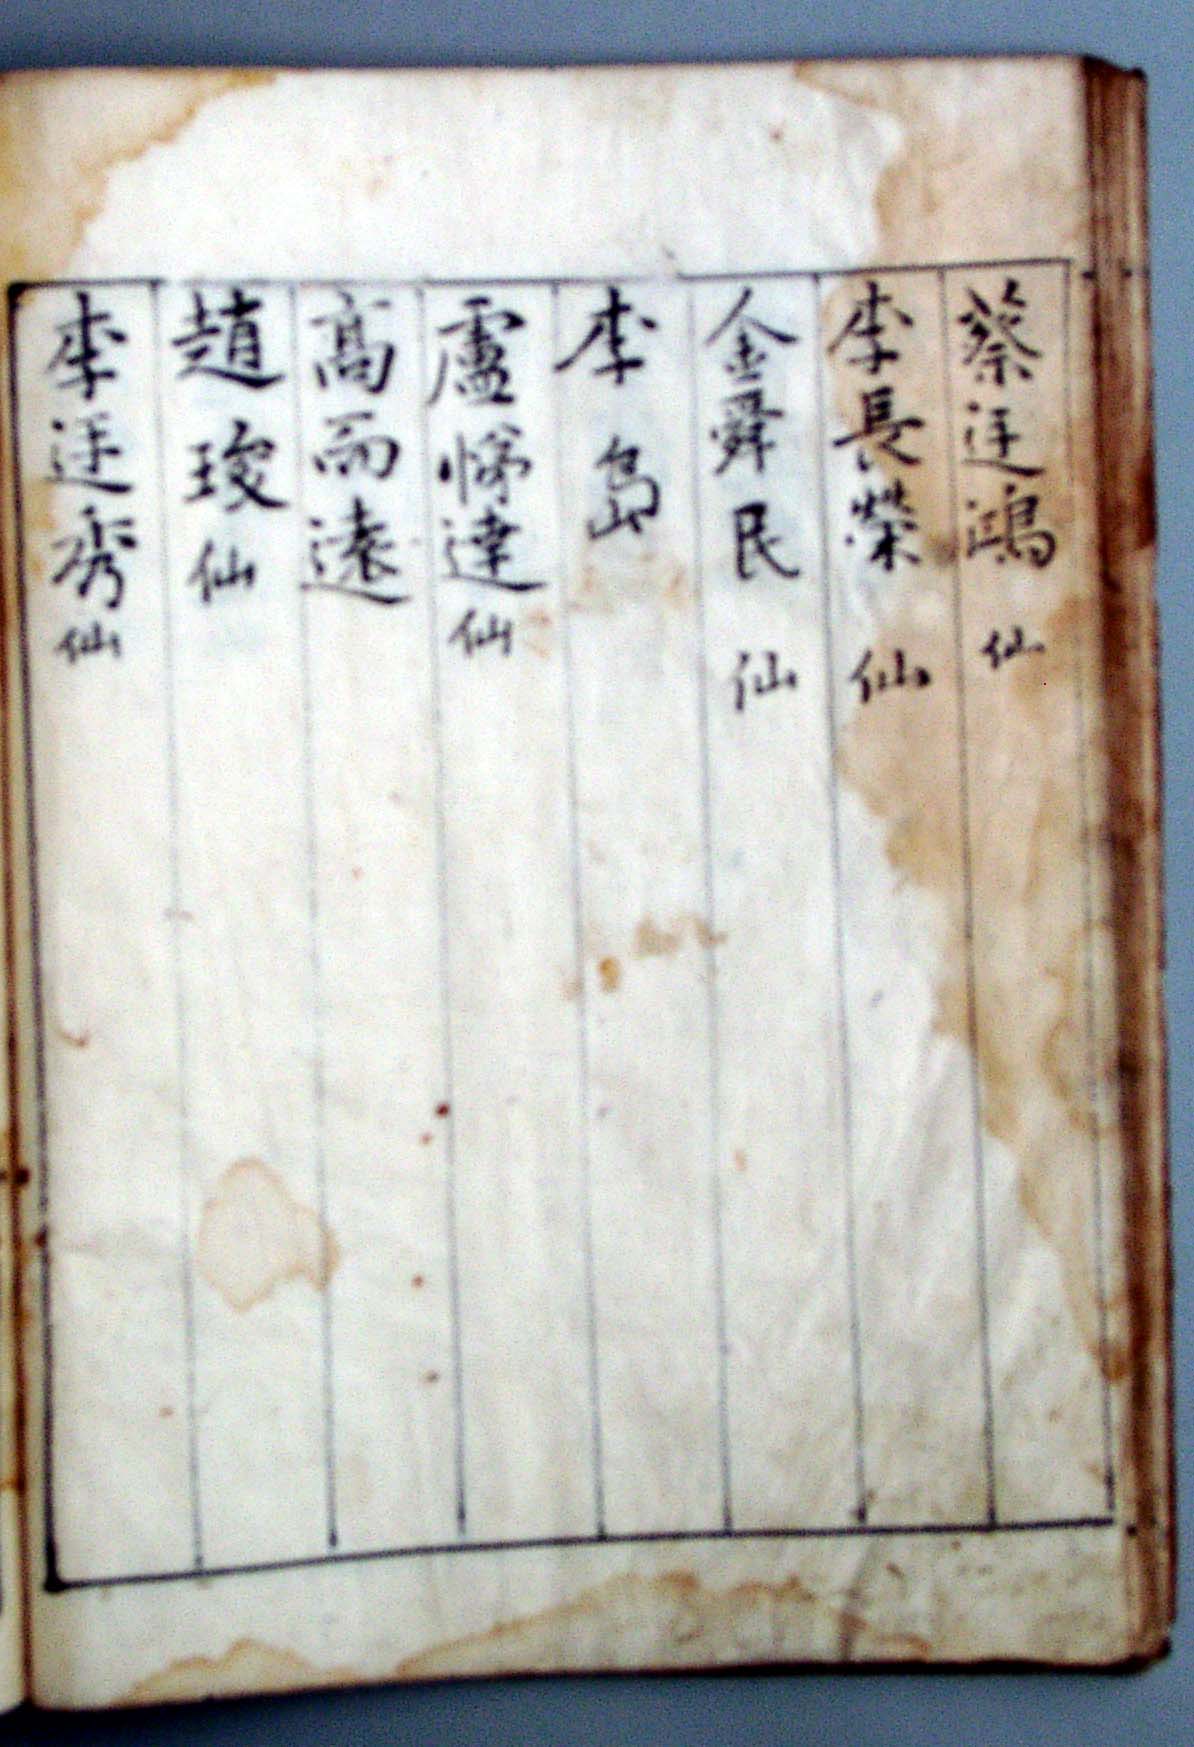 蔡廷鴻 仙
李長榮 仙
金舜民 仙
李島
盧悌達 仙
高而遠
趙琰 仙
李廷秀 仙